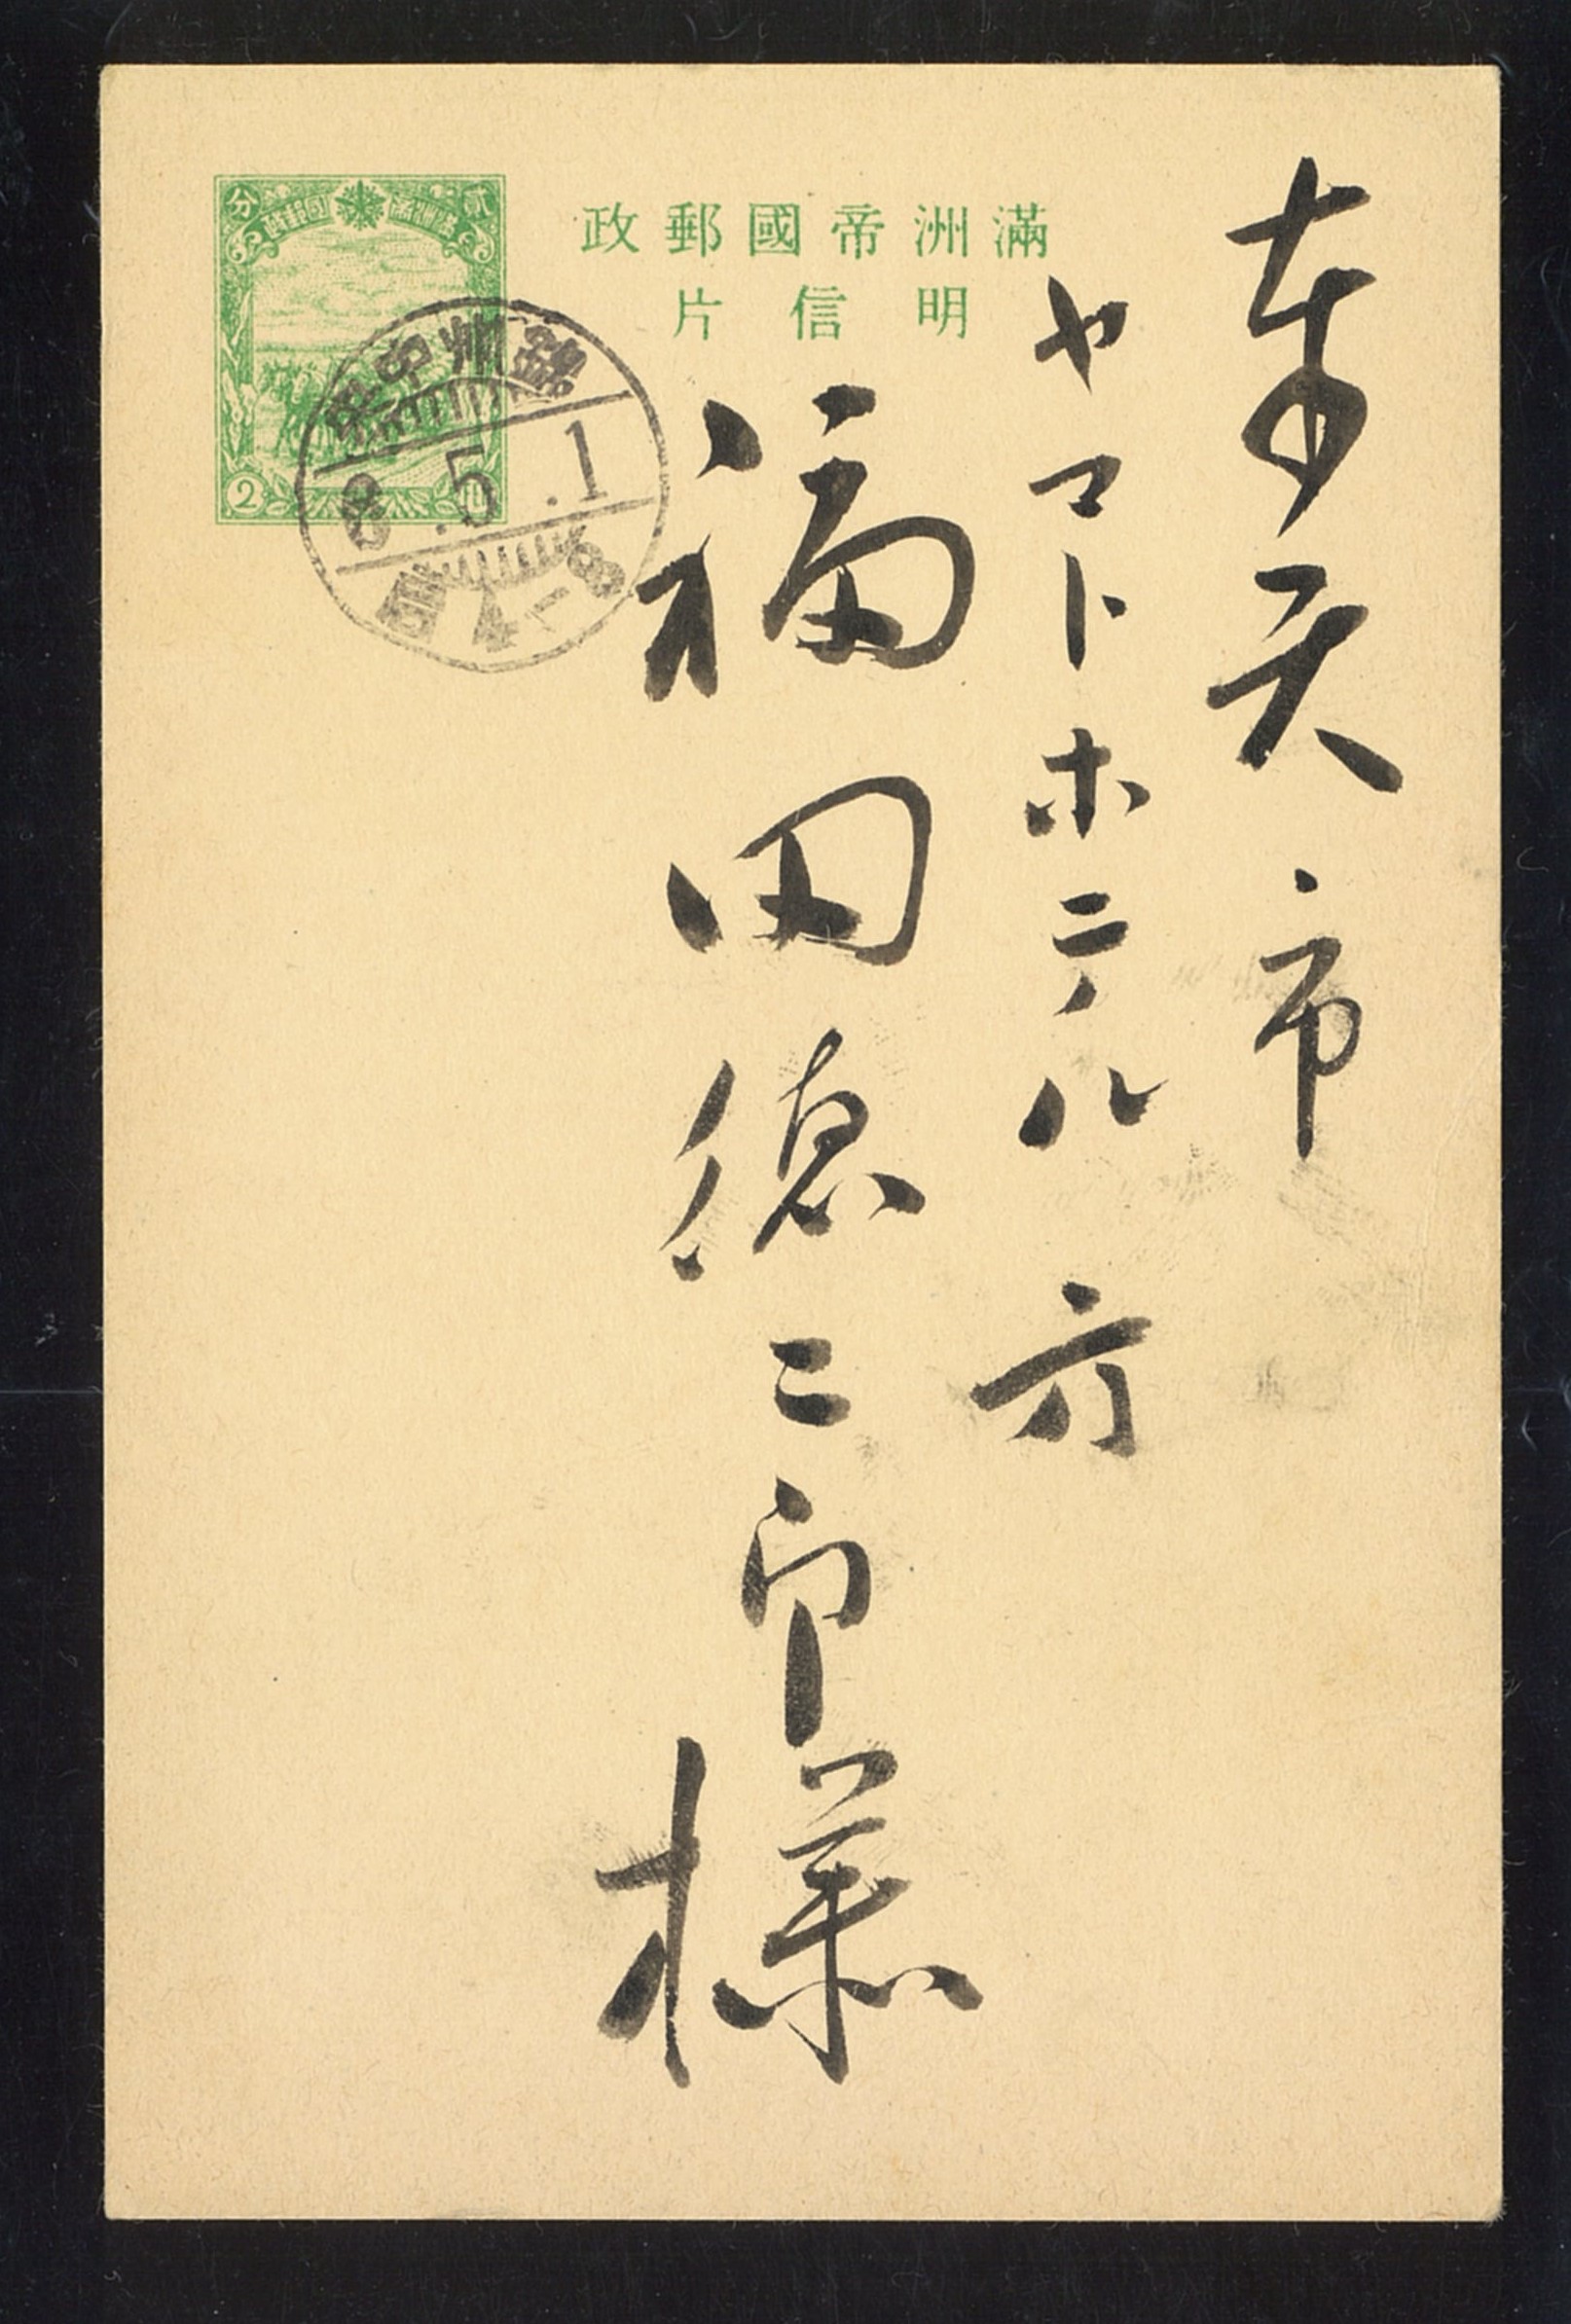 滿洲帝國郵政
明信片
貳分
滿洲帝國郵政
2
錦州中央
8.5.1
4-8
奉天市
ヤマトホテル方
福田徳二郎様